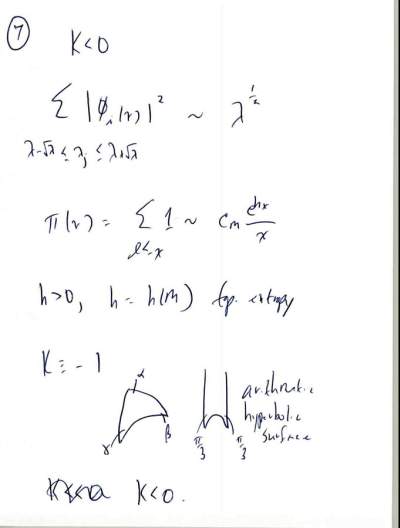 7
K<0
∑ |ϕ_j(x)|² ~ λ^½
λ-√λ ≤ λ_j ≤ λ+√λ
π(x) = ∑ 1 ~ C_M e^{hx}/x
l≤x
h>0, h = h(M) top. entropy
K ≡ -1
α
γ β
π/3 π/3
arithmetic
hyperbolic
surface
K<0.